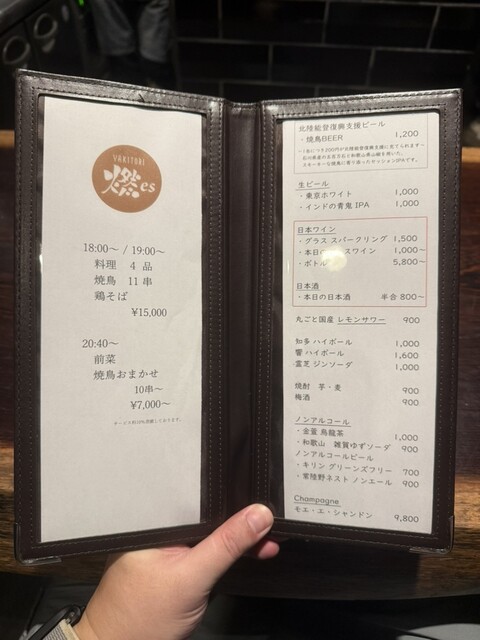 YAKITORI
燦es
18:00～ / 19:00～
料理 4 品
焼鳥 11 串
鶏そば
¥15,000
20:40～
前菜
焼鳥おまかせ
10串～
¥7,000～
北陸能登復興支援ビール
・焼鳥BEER 1,200
生ビール
・東京ホワイト 1,000
・インドの青鬼 IPA 1,000
日本ワイン
・グラス スパークリング 1,500
・本日の スワイン 1,000～
・ボトル 5,800～
日本酒
・本日の日本酒 半合 800～
丸ごと国産 レモンサワー 900
知多 ハイボール 1,000
響 ハイボール 1,600
霊芝 ジンソーダ 1,000
焼酎 芋・麦 900
梅酒 900
ノンアルコール
・金萱 烏龍茶 1,000
・和歌山 雑賀ゆずソーダ 900
ノンアルコールビール
・キリン グリーンズフリー 700
・常陸野ネスト ノンエール 900
Champagne
モエ・エ・シャンドン 9,800